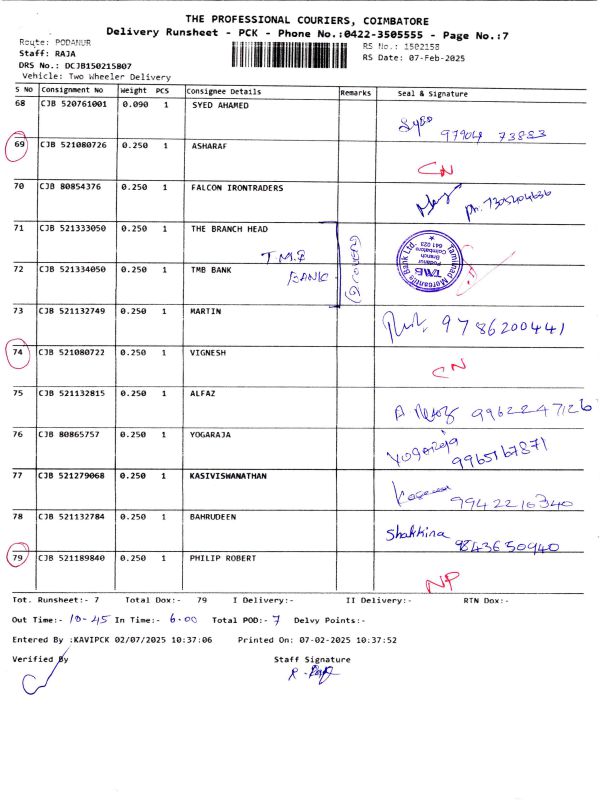 THE PROFESSIONAL COURIERS, COIMBATORE
Delivery Runsheet - PCK - Phone No.:0422-3505555 - Page No.:7
Route: PODANUR
RS No.: 1502158
Staff: RAJA
RS Date: 07-Feb-2025
DRS No.: DCJB150215807
Vehicle: Two Wheeler Delivery
S No Consignment No Weight PCS Consignee Details Remarks Seal & Signature
68 CJB 520761001 0.090 1 SYED AHAMED
69 CJB 521080726 0.250 1 ASHARAF CN
70 CJB 80854376 0.250 1 FALCON IRONTRADERS
71 CJB 521333050 0.250 1 THE BRANCH HEAD
T.M.B
BANK
Tamilnad Mercantile Bank Ltd.
TMB
Podanur
Branch
Coimbatore
641 023
72 CJB 521334050 0.250 1 TMB BANK
73 CJB 521132749 0.250 1 MARTIN 9786200441
74 CJB 521080722 0.250 1 VIGNESH CN
75 CJB 521132815 0.250 1 ALFAZ 9962247126
76 CJB 80865757 0.250 1 YOGARAJA Yogaraja 9965167871
77 CJB 521279068 0.250 1 KASIVISWANATHAN 9942216340
78 CJB 521132784 0.250 1 BAHRUDEEN Shakkina 9843650940
79 CJB 521189840 0.250 1 PHILIP ROBERT NP
Tot. Runsheet:- 7 Total Dox:- 79 I Delivery:- II Delivery:- RTN Dox:-
Out Time:- 10-45 In Time:- 6-00 Total POD:- 7 Delvy Points:-
Entered By :KAVIPCK 02/07/2025 10:37:06 Printed On: 07-02-2025 10:37:52
Verified By Staff Signature